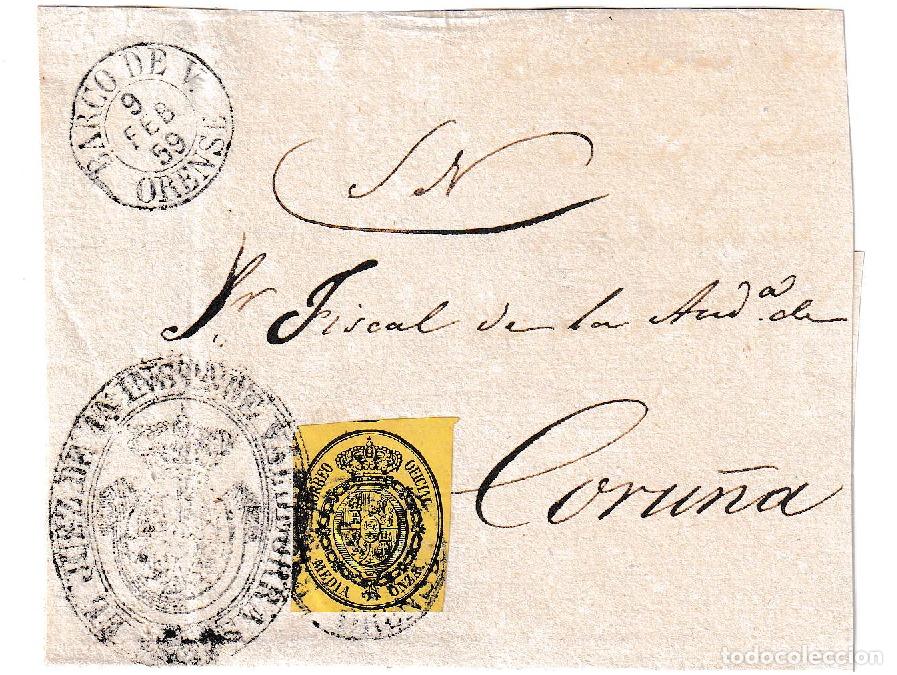 BARCO DE V.
9
FEB
59
ORENSE
S N
Sr Fiscal de la Aud.a de
Coruña
CORREO OFICIAL
MEDIA ONZA
todocoleccion